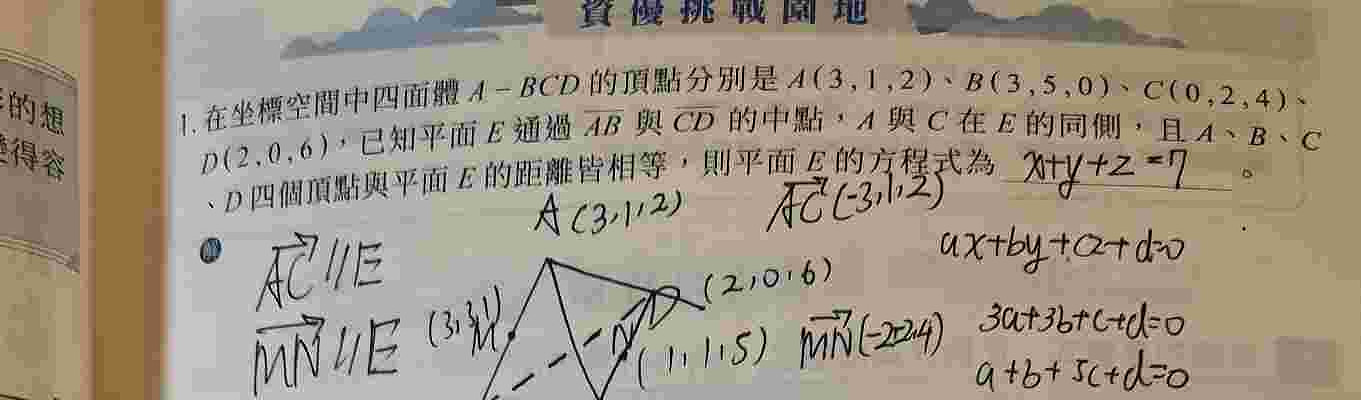 資優挑戰園地
的想
得容
1. 在坐標空間中四面體 A－BCD 的頂點分別是 A(3,1,2)、B(3,5,0)、C(0,2,4)、
D(2,0,6)，已知平面 E 通過 AB 與 CD 的中點，A 與 C 在 E 的同側，且 A、B、C
、D 四個頂點與平面 E 的距離皆相等，則平面 E 的方程式為 x+y+z=7 。
A(3,1,2) AC(-3,1,2)
AC//E ax+by+cz+d=0
(2,0,6)
MN//E (3,3,1) M N D (1,1,5) MN(-2-2,4) 3a+3b+c+d=0
a+b+5c+d=0